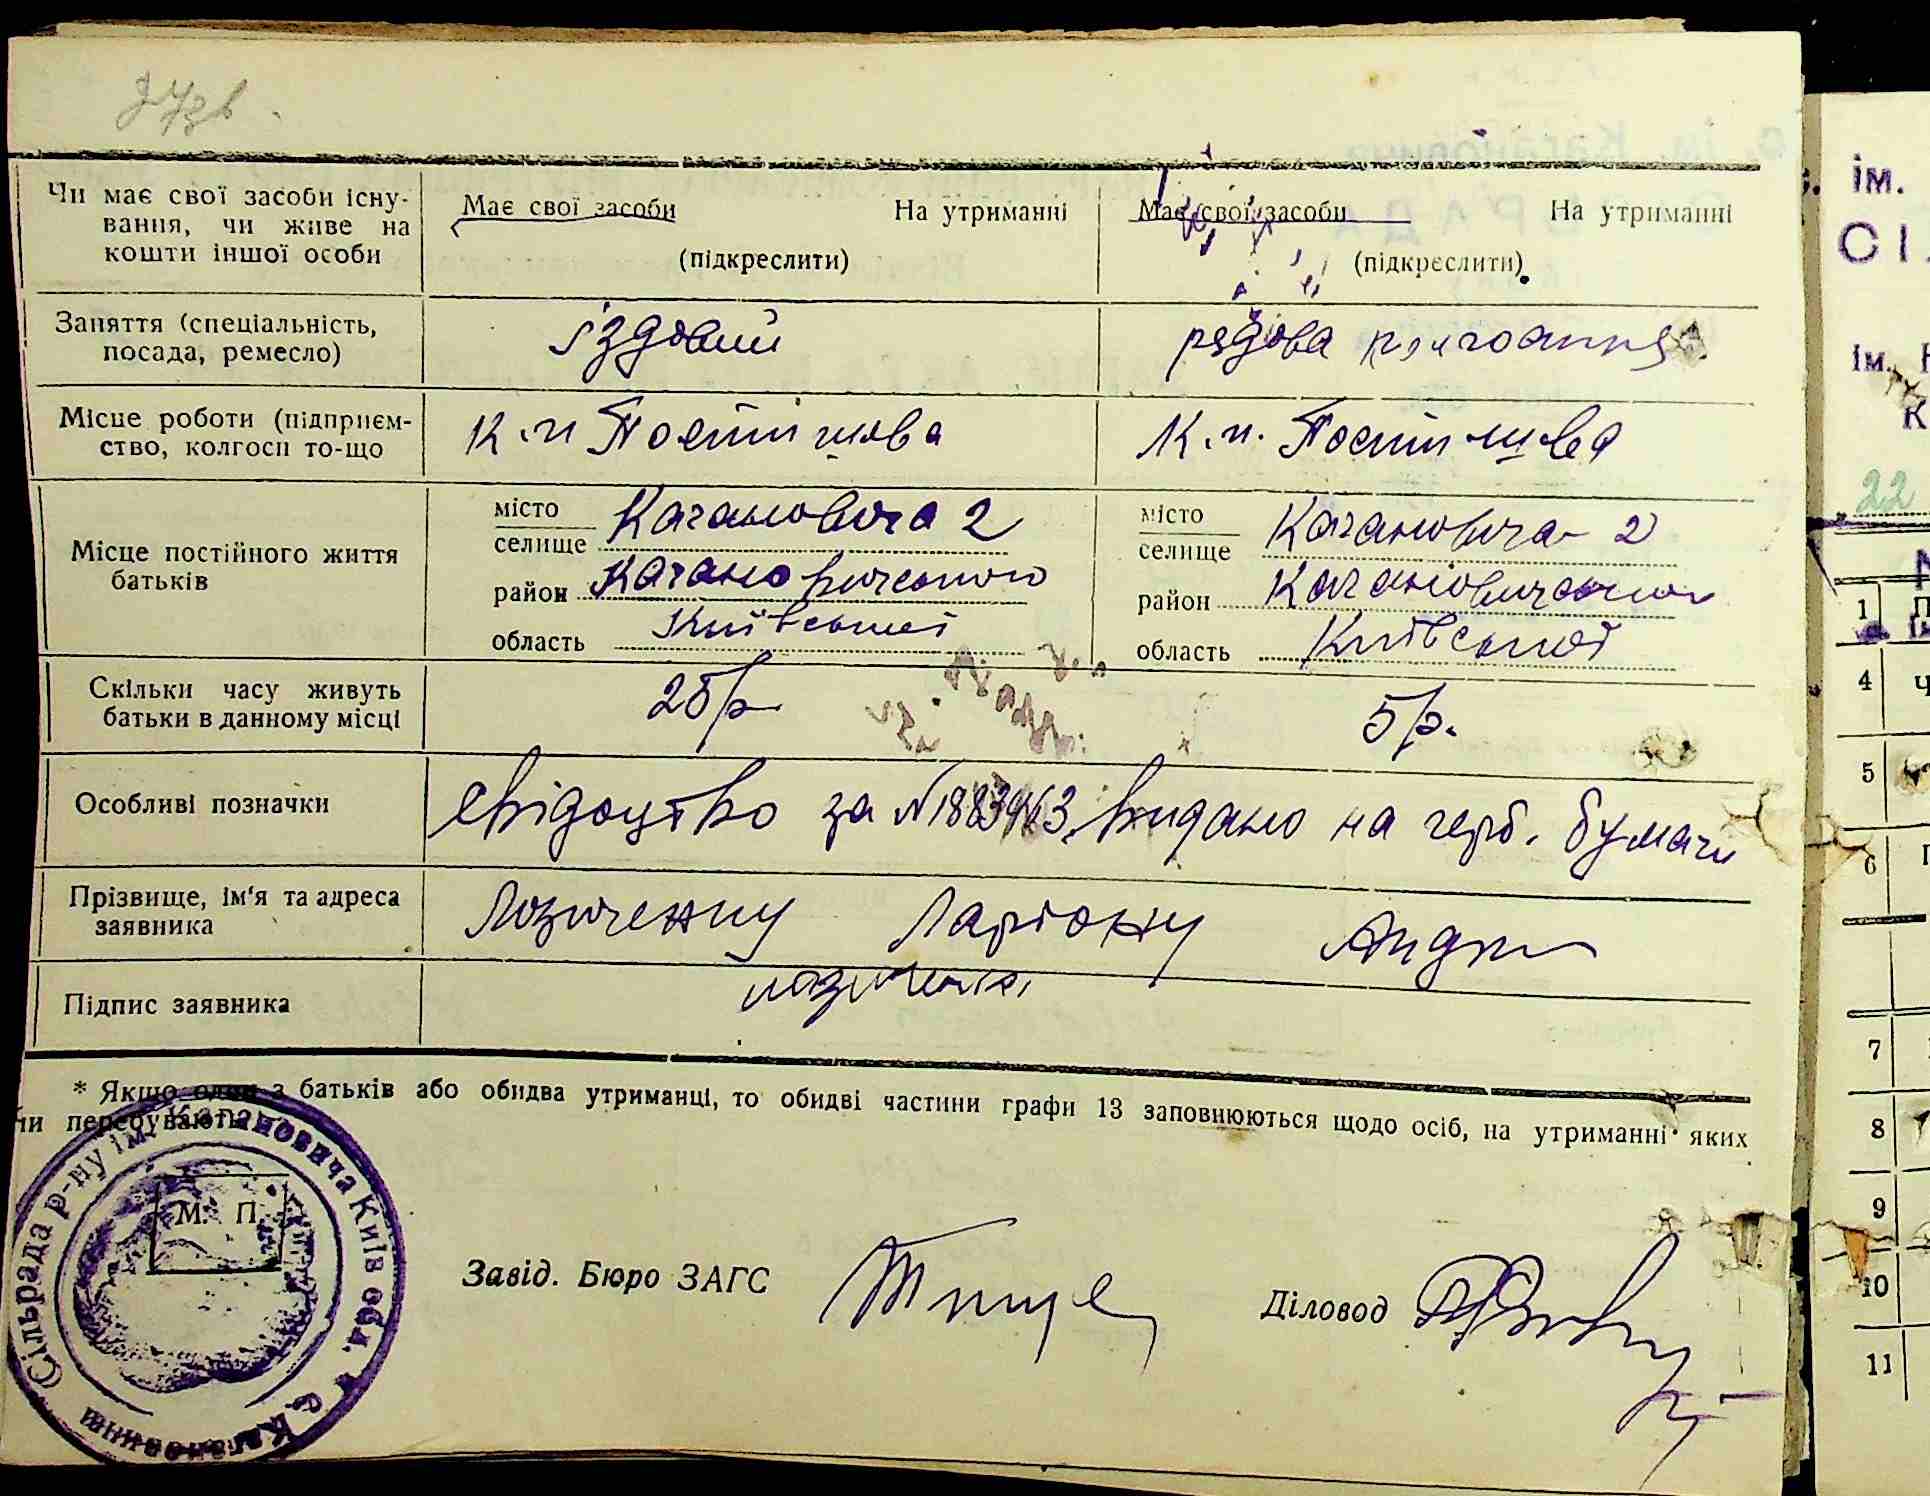 Чи має свої засоби існу-
вання, чи живе на
кошти іншої особи
Має свої засоби На утриманні
(підкреслити)
Має свої засоби На утриманні
(підкреслити)
Заняття (спеціальність,
посада, ремесло)
їздовий
рядова
Місце роботи (підприєм-
ство, колгосп то-що
к.и Постишова
К.и. Постишева
Місце постійного життя
батьків
місто
селище Кагановича 2
район Кагановичського
область Київської
місто
селище Кагановича 2
район Кагановичського
область Київської
Скільки часу живуть
батьки в данному місці
25/р
5/р.
Особливі позначки
свідоцтво за №1883463, видано на герб. бумаги
Прізвище, ім'я та адреса
заявника
Лозиченку Ларіону Андр
Підпис заявника
* Якщо один з батьків або обидва утриманці, то обидві частини графи 13 заповнюються щодо осіб, на утриманні яких
чи перебувають
Сільрада р-ну ім. Кагановича Київ обл.
М. П.
Завід. Бюро ЗАГС
Діловод
ім.
СІ
ім.
К
22
1
4
5
6
7
8
9
10
11